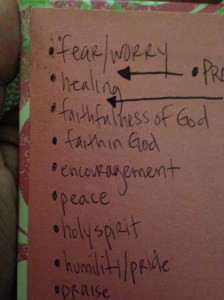 • fear/worry
• healing
• faithfulness of God
• faith in God
• encouragement
• peace
• holy spirit
• humiliti/pride
• praise